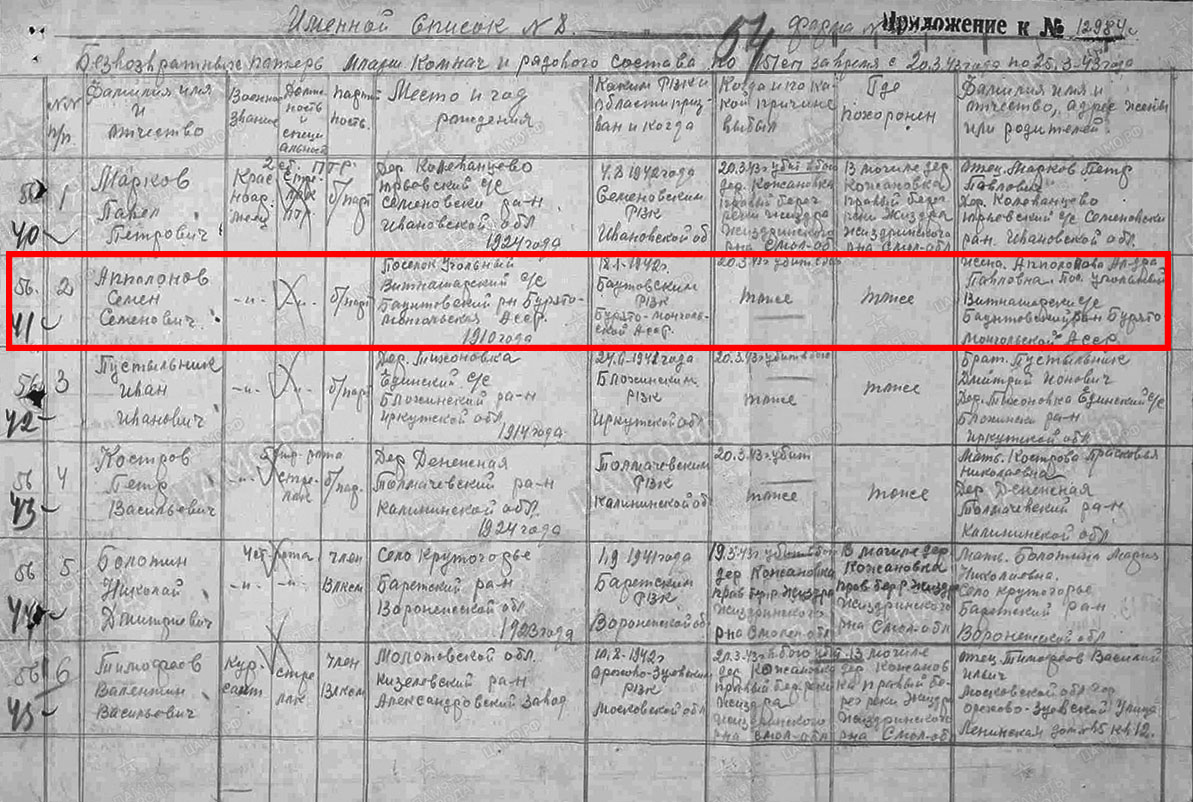 Именной Список N 8.
54
Приложение к № 12984
Безвозвратных потерь младш Комнач и рядового состава по за время с 20.3.43 года по 25.3.43 года
N N п/п.
Фамилия имя и отчество
Военное звание
Должность и специальность
парт-ность.
Место и год рождения
Каким РВК и области призван и когда
Когда и по какой причине выбыл
Где похоронен
Фамилия имя и отчество, адрес жены или родителей.
56
1
40
Марков
Павел
Петрович
Крас
ноар
меец
ПТР.
б/парт
Юрьевский с/с
Семеновски ра-н
Ивановской обл
1924 года
1942 года
Семеновским
РВК
Ивановской об
20.3.43 г убит в бою
дер. Кожановка
правый берег
реки Жиздра
Жиздринского
р-на Смол-обл
В могиле дер
Кожановка
правый берег
реки Жиздра
Жиздринского
р-на Смол-обл
Отец Марков Петр
Павлович
Юрьевский с/с Семеновски
ра-н. Ивановской обл.
56.
2
41
Апполонов
Семен
Семенович.
-"-
б/парт
Поселок Угольный
Витимашарский с/с
Баунтовский рн Бурято-
Монгольская Асср.
1910 года
1942 г.
Баутовским
РВК
Бурято-монголь-
ской Асср.
20.3.43 г убит
тоже
тоже
Жена. Апполонова Ал-дра
Павловна. Пос. Угольный
с/с
Баунтовский ран Бурято
Монгольской Асср.
56
3
42
Пустыльник
Иван
Иванович
-"-
б/парт
Дер. Тихоновка
Единский с/с
Бложинский ра-н
Иркутской обл.
1914 года
Бложинским
РВК
Иркутской обл
20.3.43 г убит в бою
тоже
тоже
Брат. Пустыльник
Дмитрий Ионович
Дер. Тихоновка Единский с/с
Бложински ра-н
Иркутской обл
56
4
43
Костров
Петр
Васильевич
-"-
рота
стре-
лок
б/пар.
Дер Денежная
Толмачевский ра-н
Калининской обл.
1924 года
Толмачевским
РВК
Калининской об
20.3.43 г убит
тоже
тоже
Мать. Кострова Прасковья
Николаевна
Дер Денежная
Толмачевский ра-н
Калининской обл
56
5
44
Болотин
Николай
Дмитриевич
рота
-"-
-"-
член
Влксм
Село Крутогорье
Баретский ра-н
Воронежской обл
1923 года
1941 года
Баретским
РВК
Воронежской обл
19.3.43 г. убит в бою
дер Кожановка
прав бер р Жиздра
Жиздринского
р-на Смолен-обл
В могиле дер.
Кожановка
прав бер р Жиздра
Жиздринского
р-на Смол-обл
Мать Болотина Мария
Николаевна.
Село Крутогорье
Баретский ра-н
Воронежской обл
56
6
45
Тимофеев
Валентин
Васильевич
Кур-
сант
стре
лок
член
Влксм
Молотовской обл.
Кизеловский ра-н
Александровский Завод
1942 г
Орехово-Зуевским
РВК
Московской об
20.3.43 г
дер Кожановка
правый бер реки
Жиздра
Жиздринского
р-на Смол обл
В могиле
дер Кожанов
ка правый бе-
рег реки Жиздр
Жиздринского
р-на Смол-об
отец Тимофеев Василий
Ильич
Московской обл гор
Орехово-Зуевской Улица
Ленинская дом 45 кв 12.